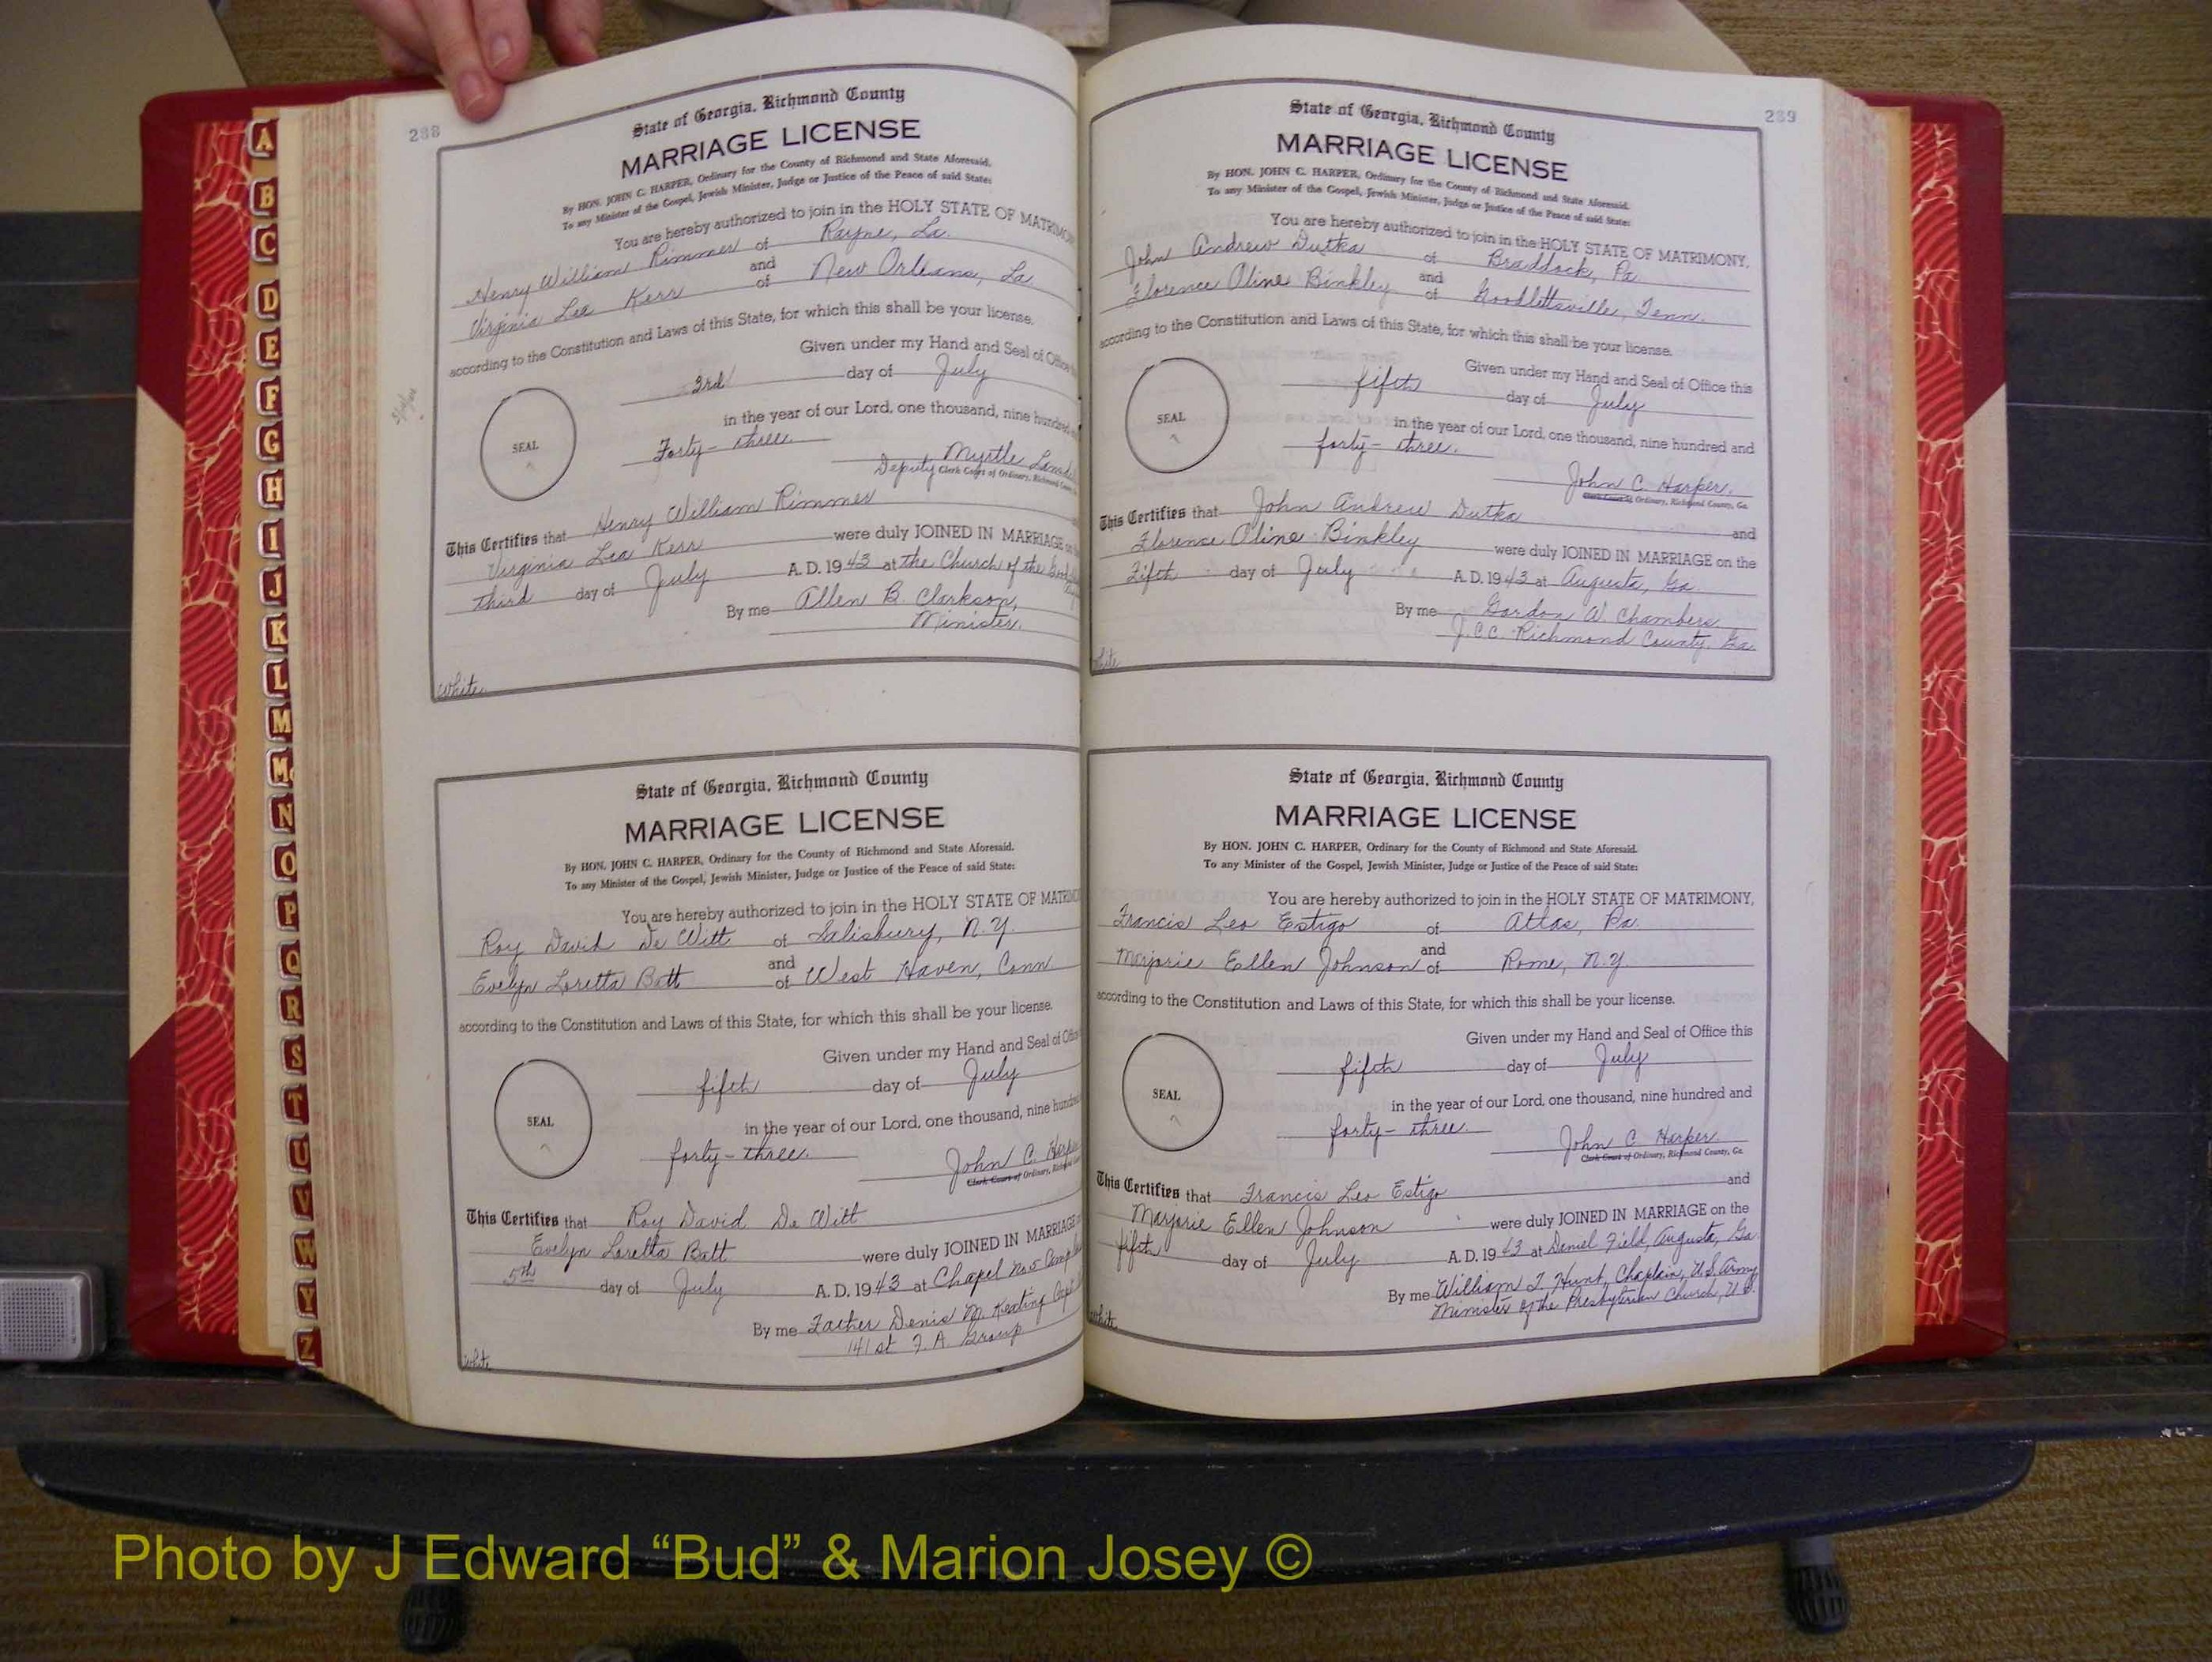 288
State of Georgia, Richmond County
MARRIAGE LICENSE
By HON. JOHN C. HARPER, Ordinary for the County of Richmond and State Aforesaid.
To any Minister of the Gospel, Jewish Minister, Judge or Justice of the Peace of said State:
You are hereby authorized to join in the HOLY STATE OF MATRIMON
Henry William Rimmer of Rayne, La.
and
Virginia Lea Kerr of New Orleans, La
according to the Constitution and Laws of this State, for which this shall be your license.
Given under my Hand and Seal of Office
3rd day of July
in the year of our Lord, one thousand, nine hundred
SEAL
Forty-three.
Myrtle
Deputy Clerk Court of Ordinary, Richmond
This Certifies that Henry William Rimmer
Virginia Lea Kerr were duly JOINED IN MARRIAGE on
third day of July A. D. 1943 at the Church of the Good
By me Allen B. Clarkson,
Minister.
White
State of Georgia, Richmond County
MARRIAGE LICENSE
By HON. JOHN C. HARPER, Ordinary for the County of Richmond and State Aforesaid.
To any Minister of the Gospel, Jewish Minister, Judge or Justice of the Peace of said State:
You are hereby authorized to join in the HOLY STATE OF MATRIMO
Roy David De Witt of Salisbury, N.Y.
and
Evelyn Loretta Batt of West Haven, Conn
according to the Constitution and Laws of this State, for which this shall be your license.
Given under my Hand and Seal of Offi
fifth day of July
SEAL
in the year of our Lord, one thousand, nine hundre
forty-three.
John C. Harpe
Clerk Court of Ordinary, Richmo
This Certifies that Roy David De Witt
Evelyn Loretta Batt were duly JOINED IN MARRIAGE
5th day of July A. D. 1943 at Chapel No 5 Camp
By me Father Denis M. Keating Capt
141st F. A. Group
White
239
State of Georgia, Richmond County
MARRIAGE LICENSE
By HON. JOHN C. HARPER, Ordinary for the County of Richmond and State Aforesaid.
To any Minister of the Gospel, Jewish Minister, Judge or Justice of the Peace of said State:
You are hereby authorized to join in the HOLY STATE OF MATRIMONY,
John Andrew Dutka of Braddock, Pa.
and
Florence Oline Binkley of Goodlettsville, Tenn.
according to the Constitution and Laws of this State, for which this shall be your license.
Given under my Hand and Seal of Office this
fifth day of July
SEAL
in the year of our Lord, one thousand, nine hundred and
forty-three.
John C. Harper.
Clerk Court of Ordinary, Richmond County, Ga.
This Certifies that John Andrew Dutka and
Florence Oline Binkley were duly JOINED IN MARRIAGE on the
Fifth day of July A. D. 1943 at Augusta, Ga.
By me Gordon W. Chambers
J.C.C. Richmond County, Ga.
White
State of Georgia, Richmond County
MARRIAGE LICENSE
By HON. JOHN C. HARPER, Ordinary for the County of Richmond and State Aforesaid.
To any Minister of the Gospel, Jewish Minister, Judge or Justice of the Peace of said State:
You are hereby authorized to join in the HOLY STATE OF MATRIMONY,
Francis Leo Estigo of Atlas, Pa.
and
Marjorie Ellen Johnson of Rome, N.Y.
according to the Constitution and Laws of this State, for which this shall be your license.
Given under my Hand and Seal of Office this
fifth day of July
SEAL
in the year of our Lord, one thousand, nine hundred and
forty-three.
John C. Harper.
Clerk Court of Ordinary, Richmond County, Ga.
This Certifies that Francis Leo Estigo and
Marjorie Ellen Johnson were duly JOINED IN MARRIAGE on the
fifth day of July A. D. 1943 at Daniel Field, Augusta, Ga.
By me William T Hunt, Chaplain, U.S. Army
Minister of the Presbyterian Church, U.S.
White
A
B
C
D
E
F
G
H
I
J
K
L
M
Mc
N
O
P
Q
R
S
T
U
V
W
Y
Z
Photo by J Edward “Bud” & Marion Josey ©